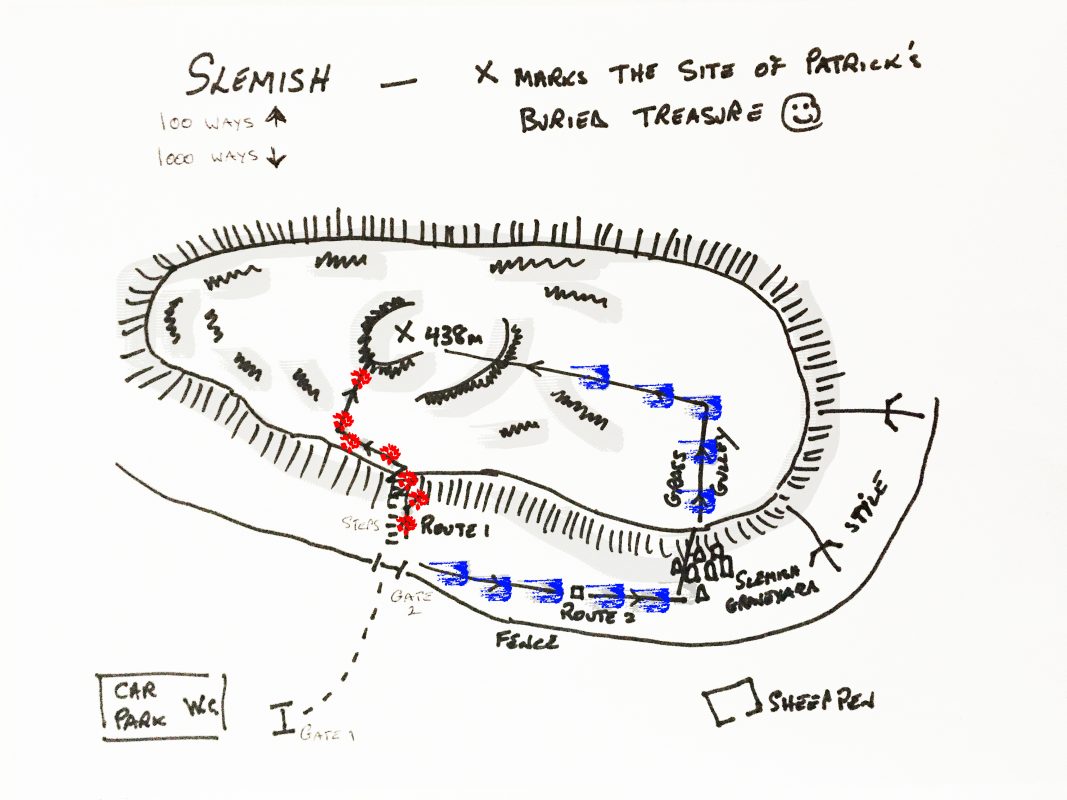 SLEMISH — X MARKS THE SITE OF PATRICK'S
BURIED TREASURE
100 WAYS ↑
1000 WAYS ↓
X 438m
GRASS
GULLEY
STEPS
ROUTE 1
STILE
SLEMISH
GRAVEYARD
GATE
2
ROUTE 2
FENCE
CAR
PARK
W.C.
GATE 1
SHEEP PEN